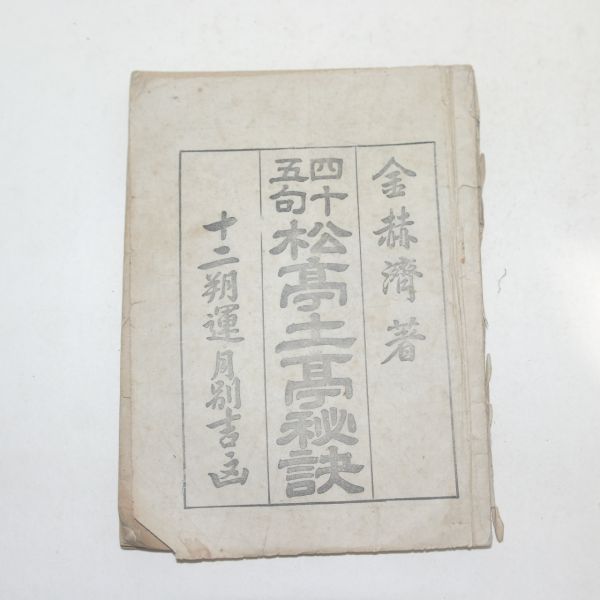 金赫濟 著
四十五句
松亭土亭秘訣
十二朔運月別吉凶